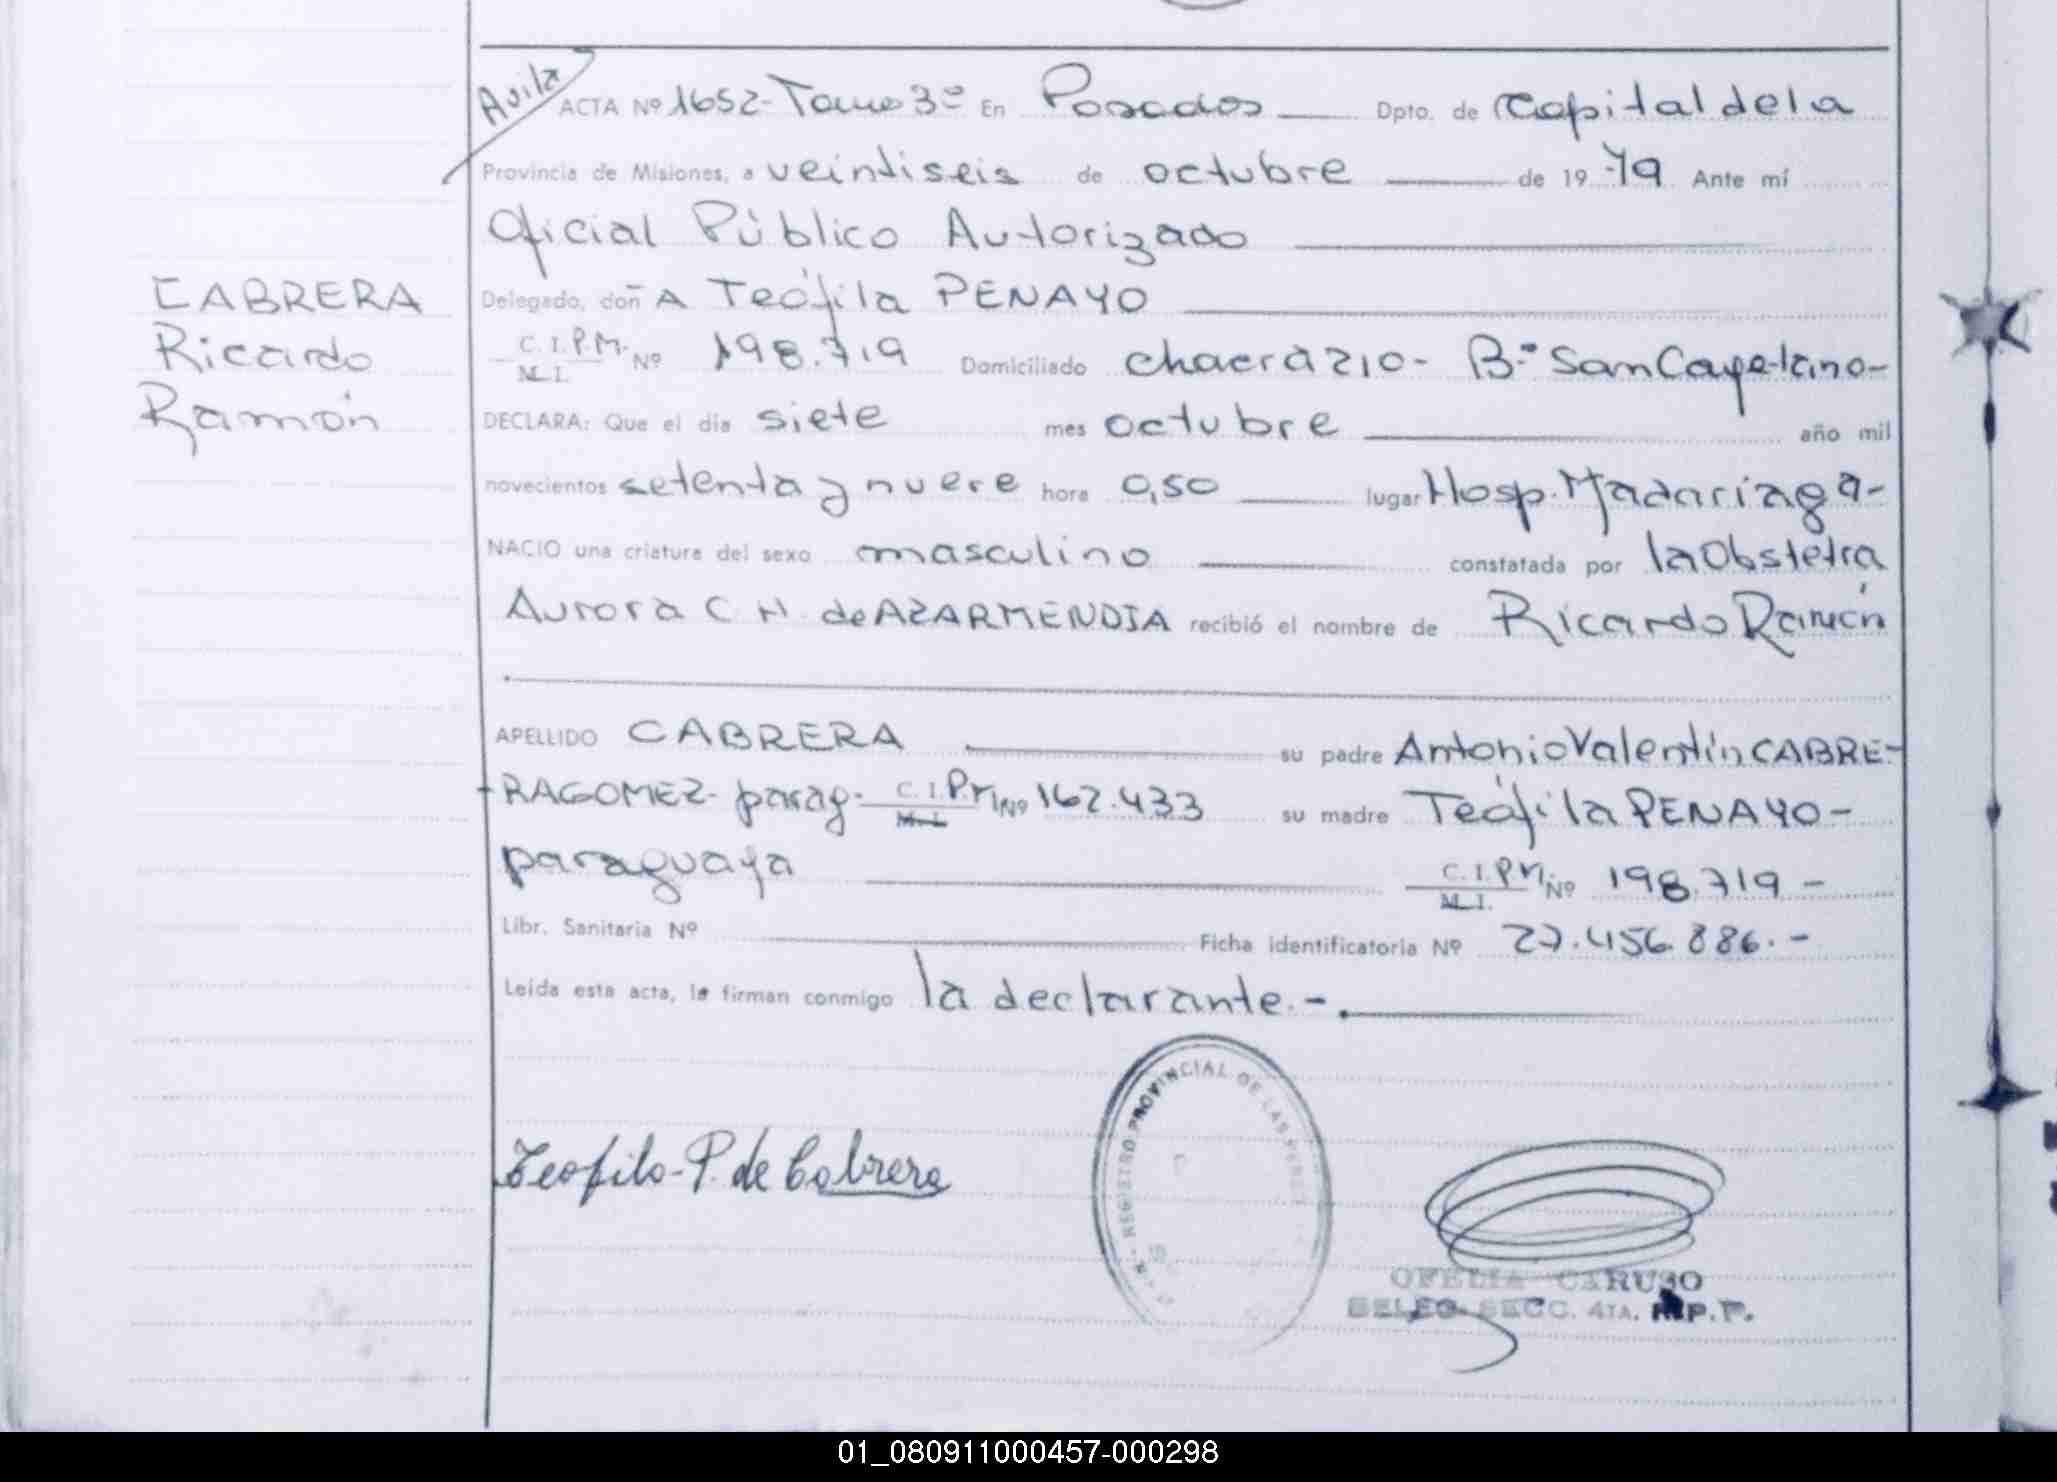 Avila
ACTA Nº 1652- Tomo 3º En Posadas Dpto. de Capital de la
Provincia de Misiones, a veintiseis de octubre de 19 79 Ante mí
Oficial Público Autorizado
CABRERA
Ricardo
Ramón
Delegado, doñA Teófila PENAYO
C. I. P.M. M. I. Nº 198.719 Domiciliado chacra 210- Bº San Cayetano-
DECLARA: Que el día siete mes octubre año mil
novecientos setenta y nueve hora 0,50 lugar Hosp. Madariaga-
NACIO una criatura del sexo masculino constatada por la Obstetra
Aurora C H. de AZARMENDIA recibió el nombre de Ricardo Ramón
APELLIDO CABRERA su padre Antonio Valentín CABRE-
RA GOMEZ- parag- C. I. P.M. M. I. Nº 162.433 su madre Teófila PENAYO-
paraguaya C. I. P.M. M. I. Nº 198.719 -
Libr. Sanitaria Nº Ficha identificatoria Nº 27.456.886.-
Leída esta acta, la firman conmigo la declarante.-
REGISTRO PROVINCIAL DE LAS
Teofila-P. de Cabrera
OFELIA CARUSO
DELEG. SECC. 4TA. R.P.P.
01_080911000457-000298